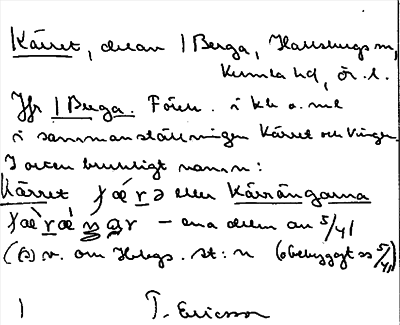 Kärret, delan / Berga, Hallsbergs sn,
Kumla hd, Ör. l.
Jfr / Berga. Fören. i kb o. ml
i sammanställningen Kärret och Vingen.
I orten brukligt namn:
Kärret eller Kärrängarna
– ena delen an 5/41
(S) v. om Hbgs. st:n (obebyggt 5/41)
/ T. Ericsson